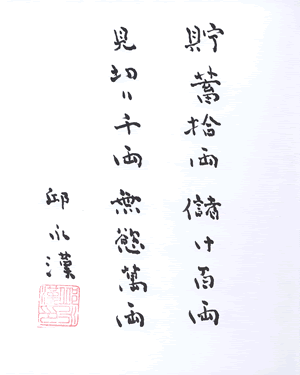 貯蓄拾両 儲け百両
見切り千両 無慾萬両
邱永漢